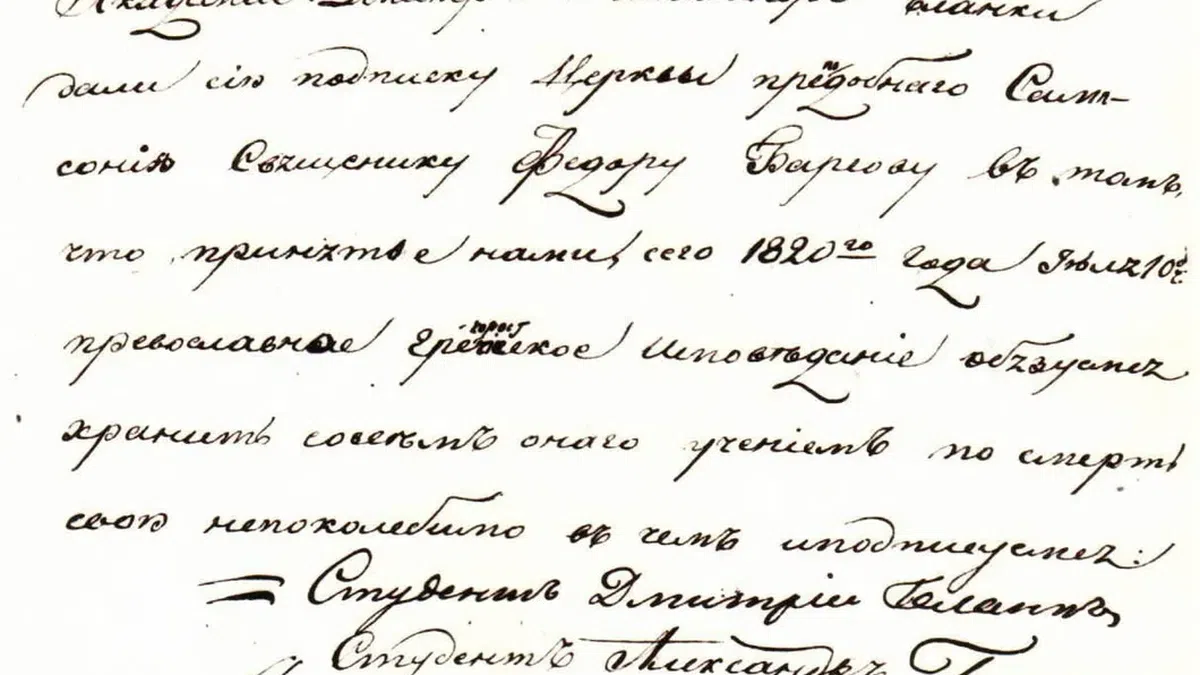 Академіи Дмитрій и Александръ Бланки
дали сію подписку Церквы преподобнаго Самп-
сонія Священнику Федору Барсову въ томъ,
что принятое нами, сего 1820го года Іюля 10 д.
православное греческое исповѣданіе обязуемся
хранить со всѣмъ онаго ученіемъ по смерть
свою непоколебимо въ чемъ и подписуемся:
= Студентъ Дмитрій Бланкъ,
Студентъ Александръ